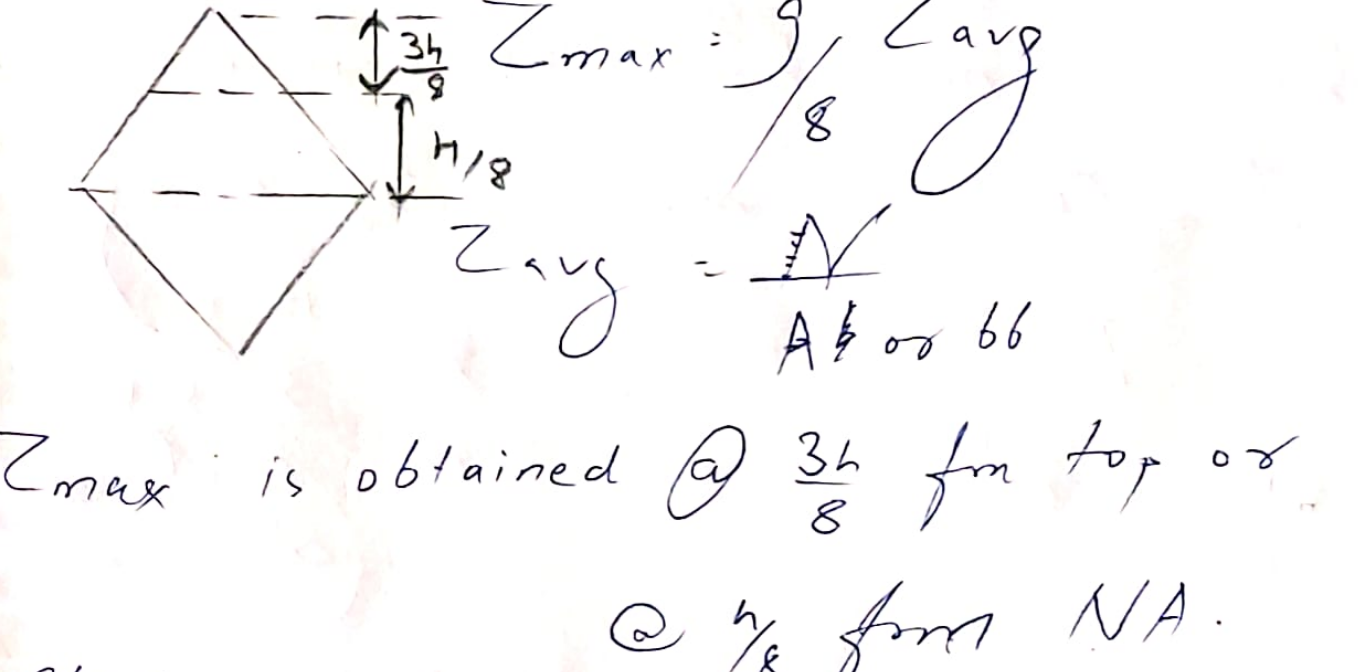 3h/8 Zmax = 9/8 Zavg
H/8
Zavg = V/A or bb
Zmax is obtained @ 3h/8 fm top or
@ h/8 from NA.